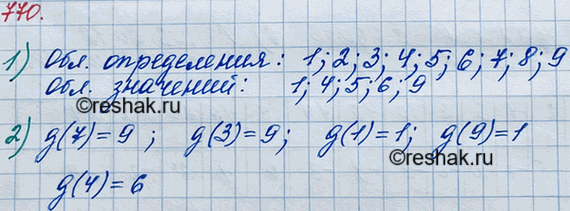 770.
1) Обл. определения: 1; 2; 3; 4; 5; 6; 7; 8; 9
Обл. значений: 1; 4; 5; 6; 9
©reshak.ru
2) g(7)=9; g(3)=9; g(1)=1; g(9)=1
©reshak.ru
g(4)=6